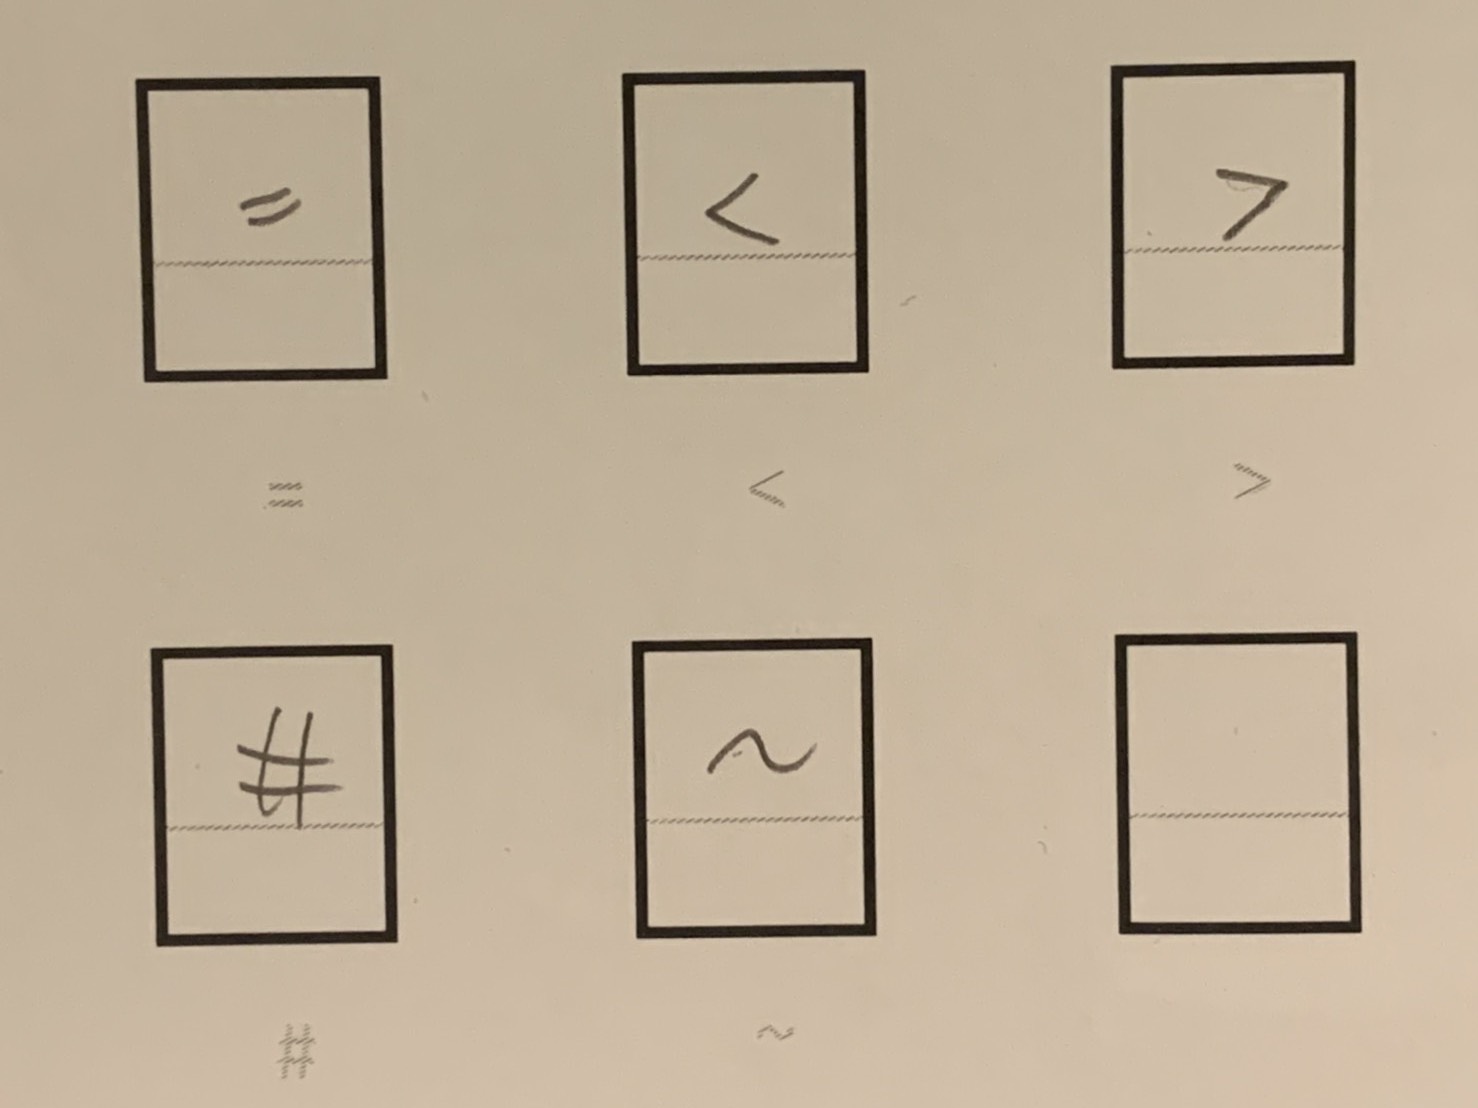 = < >
= < >
# ~
# ~